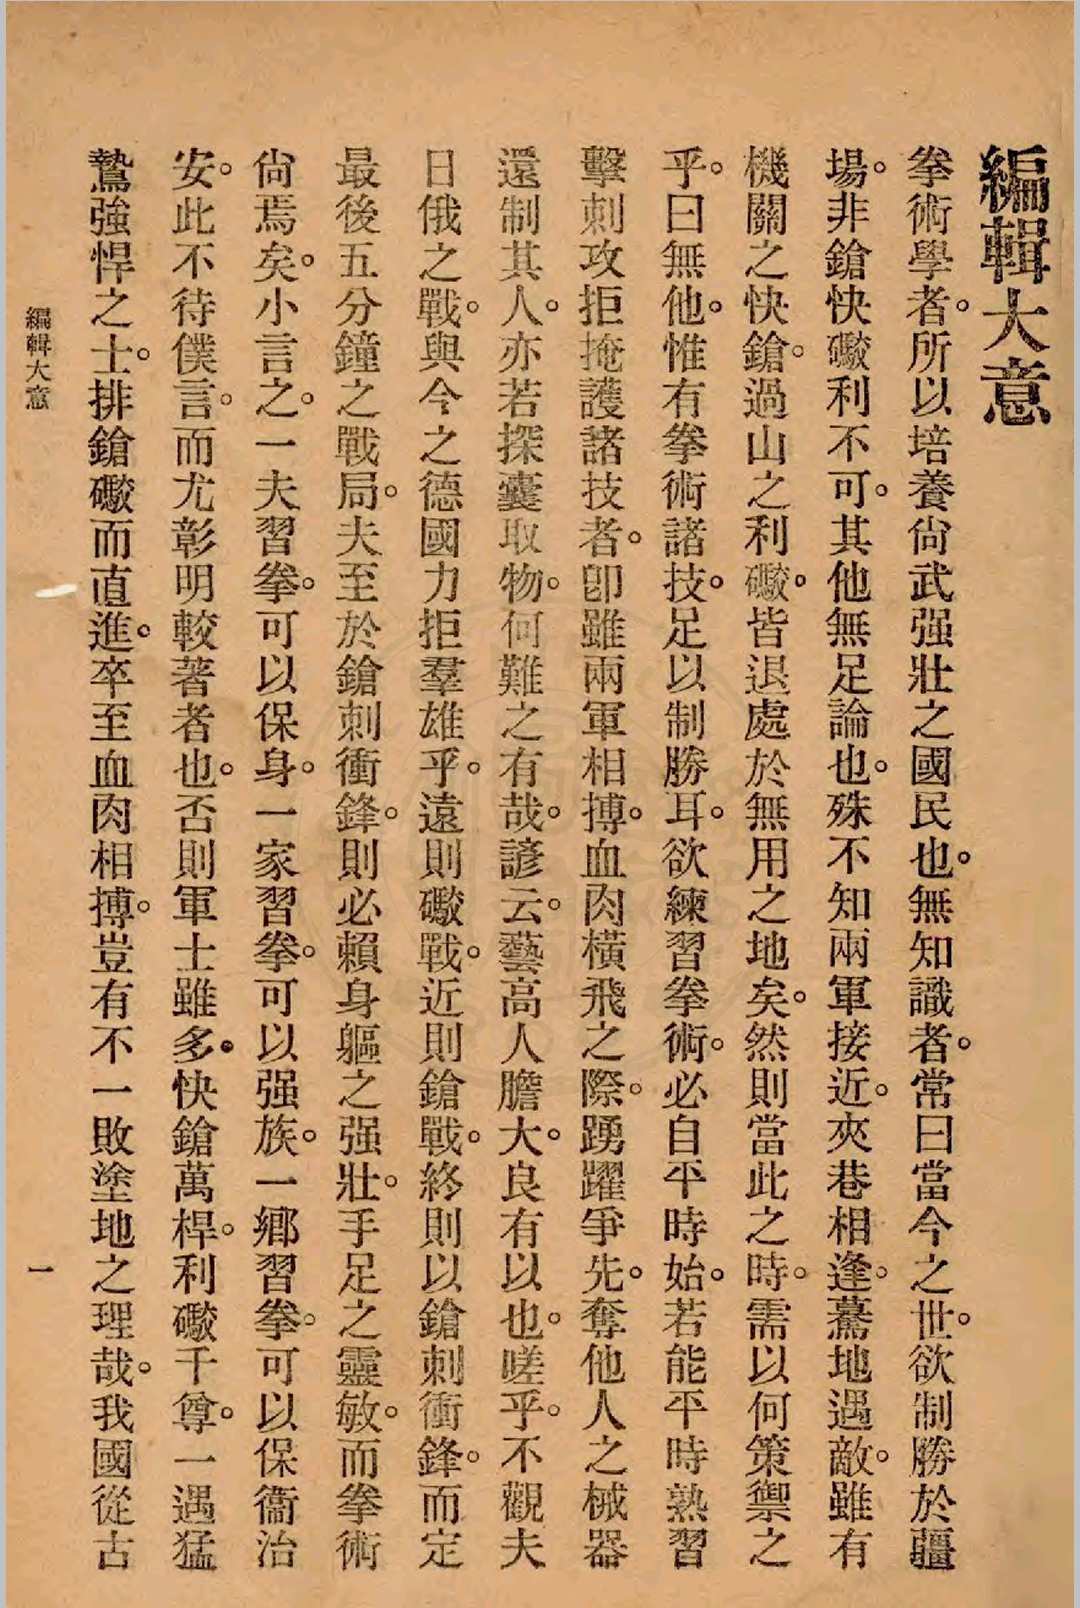 編輯大意
拳術學者。所以培養尙武强壯之國民也。無知識者。常曰當今之世。欲制勝於疆
場。非鎗快礮利不可。其他無足論也。殊不知兩軍接近。夾巷相逢。驀地遇敵。雖有
機關之快鎗。過山之利礮。皆退處於無用之地矣。然則當此之時。需以何策禦之
乎。曰無他。惟有拳術諸技。足以制勝耳。欲練習拳術。必自平時始。若能平時熟習
擊刺攻拒掩護諸技者。卽雖兩軍相搏。血肉橫飛之際。踴躍爭先。奪他人之械器
還制其人。亦若探囊取物。何難之有哉。諺云。藝高人膽大。良有以也。嗟乎。不觀夫
日俄之戰。與今之德國力拒羣雄乎。遠則礮戰。近則鎗戰。終則以鎗刺衝鋒。而定
最後五分鐘之戰局。夫至於鎗刺衝鋒。則必賴身軀之强壯。手足之靈敏。而拳術
尙焉矣。小言之。一夫習拳。可以保身。一家習拳。可以强族。一鄕習拳。可以保衞治
安。此不待僕言。而尤彰明較著者也。否則軍士雖多。快鎗萬桿。利礮千尊。一遇猛
鷙強悍之士。排鎗礮而直進。卒至血肉相搏。豈有不一敗塗地之理哉。我國從古
編輯大意
一